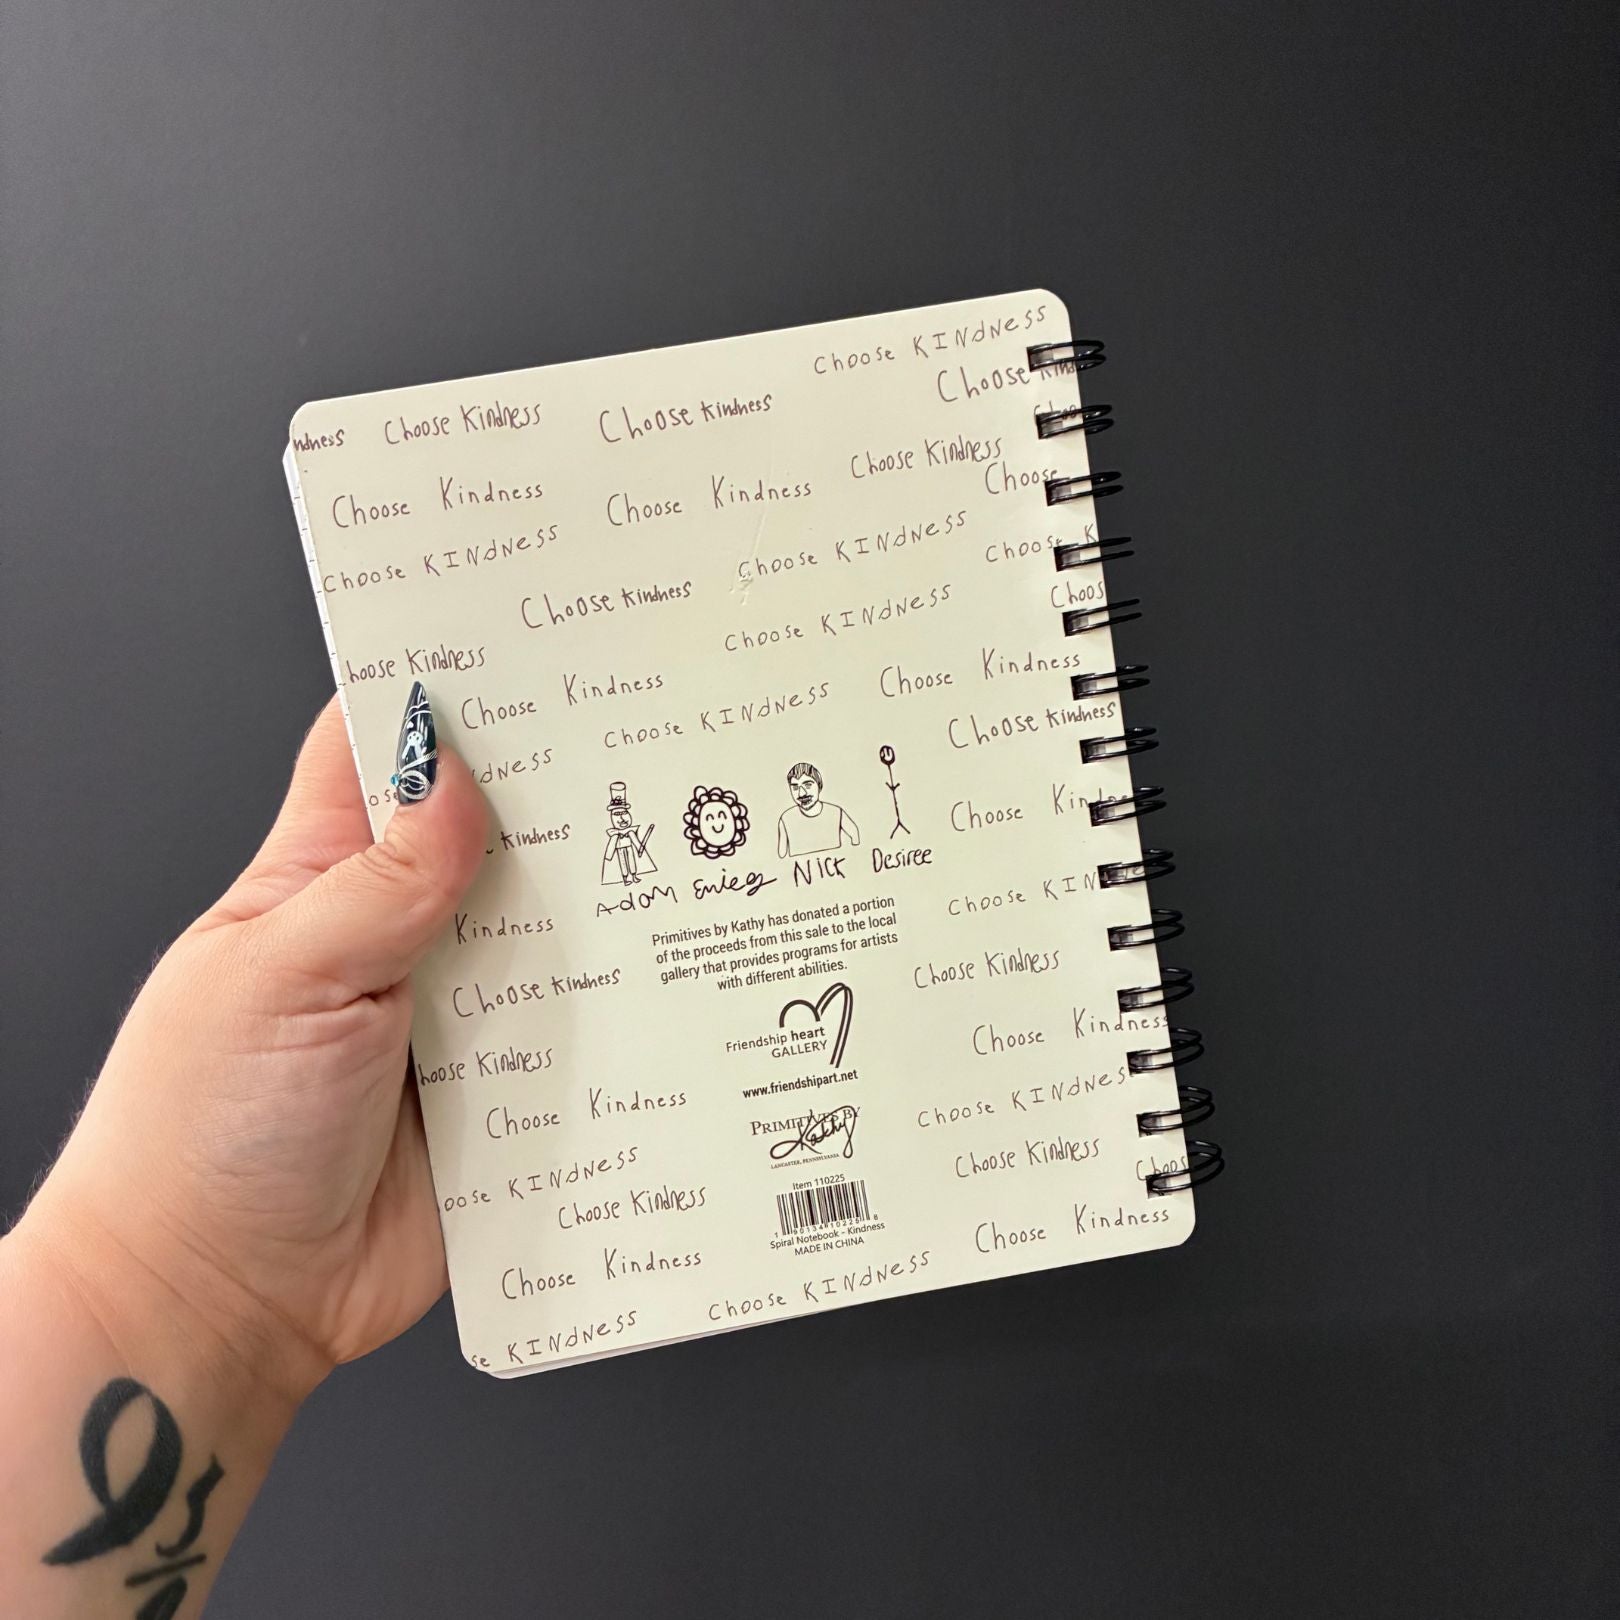 Choose KINdNess
Choose
ndness Choose Kindness Choose kindness
Choose Kindness
Choose Kindness Choose Kindness Choose
Choose KINdNess Choose KINdNess Choose K
Choose kindness Choos
hoose Kindness Choose KINdNess
Choose Kindness Choose Kindness
dness Choose KINdNess Choose kindness
ose
kindness Choose Kindne
Adam Nick Desiree
Kindness Choose KIN
Primitives by Kathy has donated a portion
of the proceeds from this sale to the local
gallery that provides programs for artists
with different abilities.
Choose kindness Choose Kindness
Friendship heart
GALLERY
hoose Kindness Choose Kindness
www.friendshipart.net
Choose Kindness Choose KINdNes
PRIMITIVES BY
Kathy
LANCASTER, PENNSYLVANIA
oose KINdNess Choose Kindness Choos
Item 110225
Choose Kindness
1 90134 10225 8
Spiral Notebook - Kindness
MADE IN CHINA
Choose Kindness Choose Kindness
se KINdNess Choose KINdNess